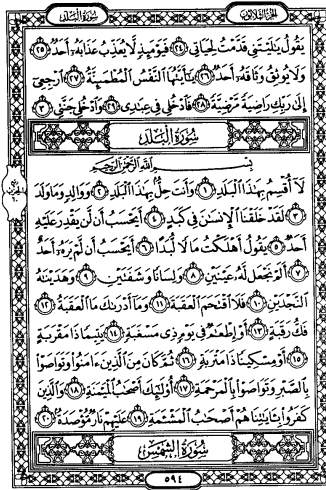 الجزء الثلاثون
سورة البلد
يَقُولُ يَٰلَيْتَنِى قَدَّمْتُ لِحَيَاتِى ٢٤ فَيَوْمَئِذٍ لَّا يُعَذِّبُ عَذَابَهُۥٓ أَحَدٌ ٢٥
وَلَا يُوثِقُ وَثَاقَهُۥٓ أَحَدٌ ٢٦ يَٰٓأَيَّتُهَا ٱلنَّفْسُ ٱلْمُطْمَئِنَّةُ ٢٧ ٱرْجِعِىٓ
إِلَىٰ رَبِّكِ رَاضِيَةً مَّرْضِيَّةً ٢٨ فَٱدْخُلِى فِى عِبَٰدِى ٢٩ وَٱدْخُلِى جَنَّتِى ٣٠
سورة البلد
بِسْمِ ٱللَّهِ ٱلرَّحْمَٰنِ ٱلرَّحِيمِ
لَآ أُقْسِمُ بِهَٰذَا ٱلْبَلَدِ ١ وَأَنتَ حِلٌّۢ بِهَٰذَا ٱلْبَلَدِ ٢ وَوَالِدٍ وَمَا وَلَدَ
٣ لَقَدْ خَلَقْنَا ٱلْإِنسَٰنَ فِى كَبَدٍ ٤ أَيَحْسَبُ أَن لَّن يَقْدِرَ عَلَيْهِ
أَحَدٌ ٥ يَقُولُ أَهْلَكْتُ مَالًا لُّبَدًا ٦ أَيَحْسَبُ أَن لَّمْ يَرَهُۥٓ أَحَدٌ
٧ أَلَمْ نَجْعَل لَّهُۥ عَيْنَيْنِ ٨ وَلِسَانًا وَشَفَتَيْنِ ٩ وَهَدَيْنَٰهُ
ٱلنَّجْدَيْنِ ١٠ فَلَا ٱقْتَحَمَ ٱلْعَقَبَةَ ١١ وَمَآ أَدْرَىٰكَ مَا ٱلْعَقَبَةُ ١٢
فَكُّ رَقَبَةٍ ١٣ أَوْ إِطْعَٰمٌ فِى يَوْمٍ ذِى مَسْغَبَةٍ ١٤ يَتِيمًا ذَا مَقْرَبَةٍ
١٥ أَوْ مِسْكِينًا ذَا مَتْرَبَةٍ ١٦ ثُمَّ كَانَ مِنَ ٱلَّذِينَ ءَامَنُوا۟ وَتَوَاصَوْا۟
بِٱلصَّبْرِ وَتَوَاصَوْا۟ بِٱلْمَرْحَمَةِ ١٧ أُو۟لَٰٓئِكَ أَصْحَٰبُ ٱلْمَيْمَنَةِ ١٨ وَٱلَّذِينَ
كَفَرُوا۟ بِـَٔايَٰتِنَا هُمْ أَصْحَٰبُ ٱلْمَشْـَٔمَةِ ١٩ عَلَيْهِمْ نَارٌ مُّؤْصَدَةٌۢ ٢٠
سورة الشمس
٥٩٤